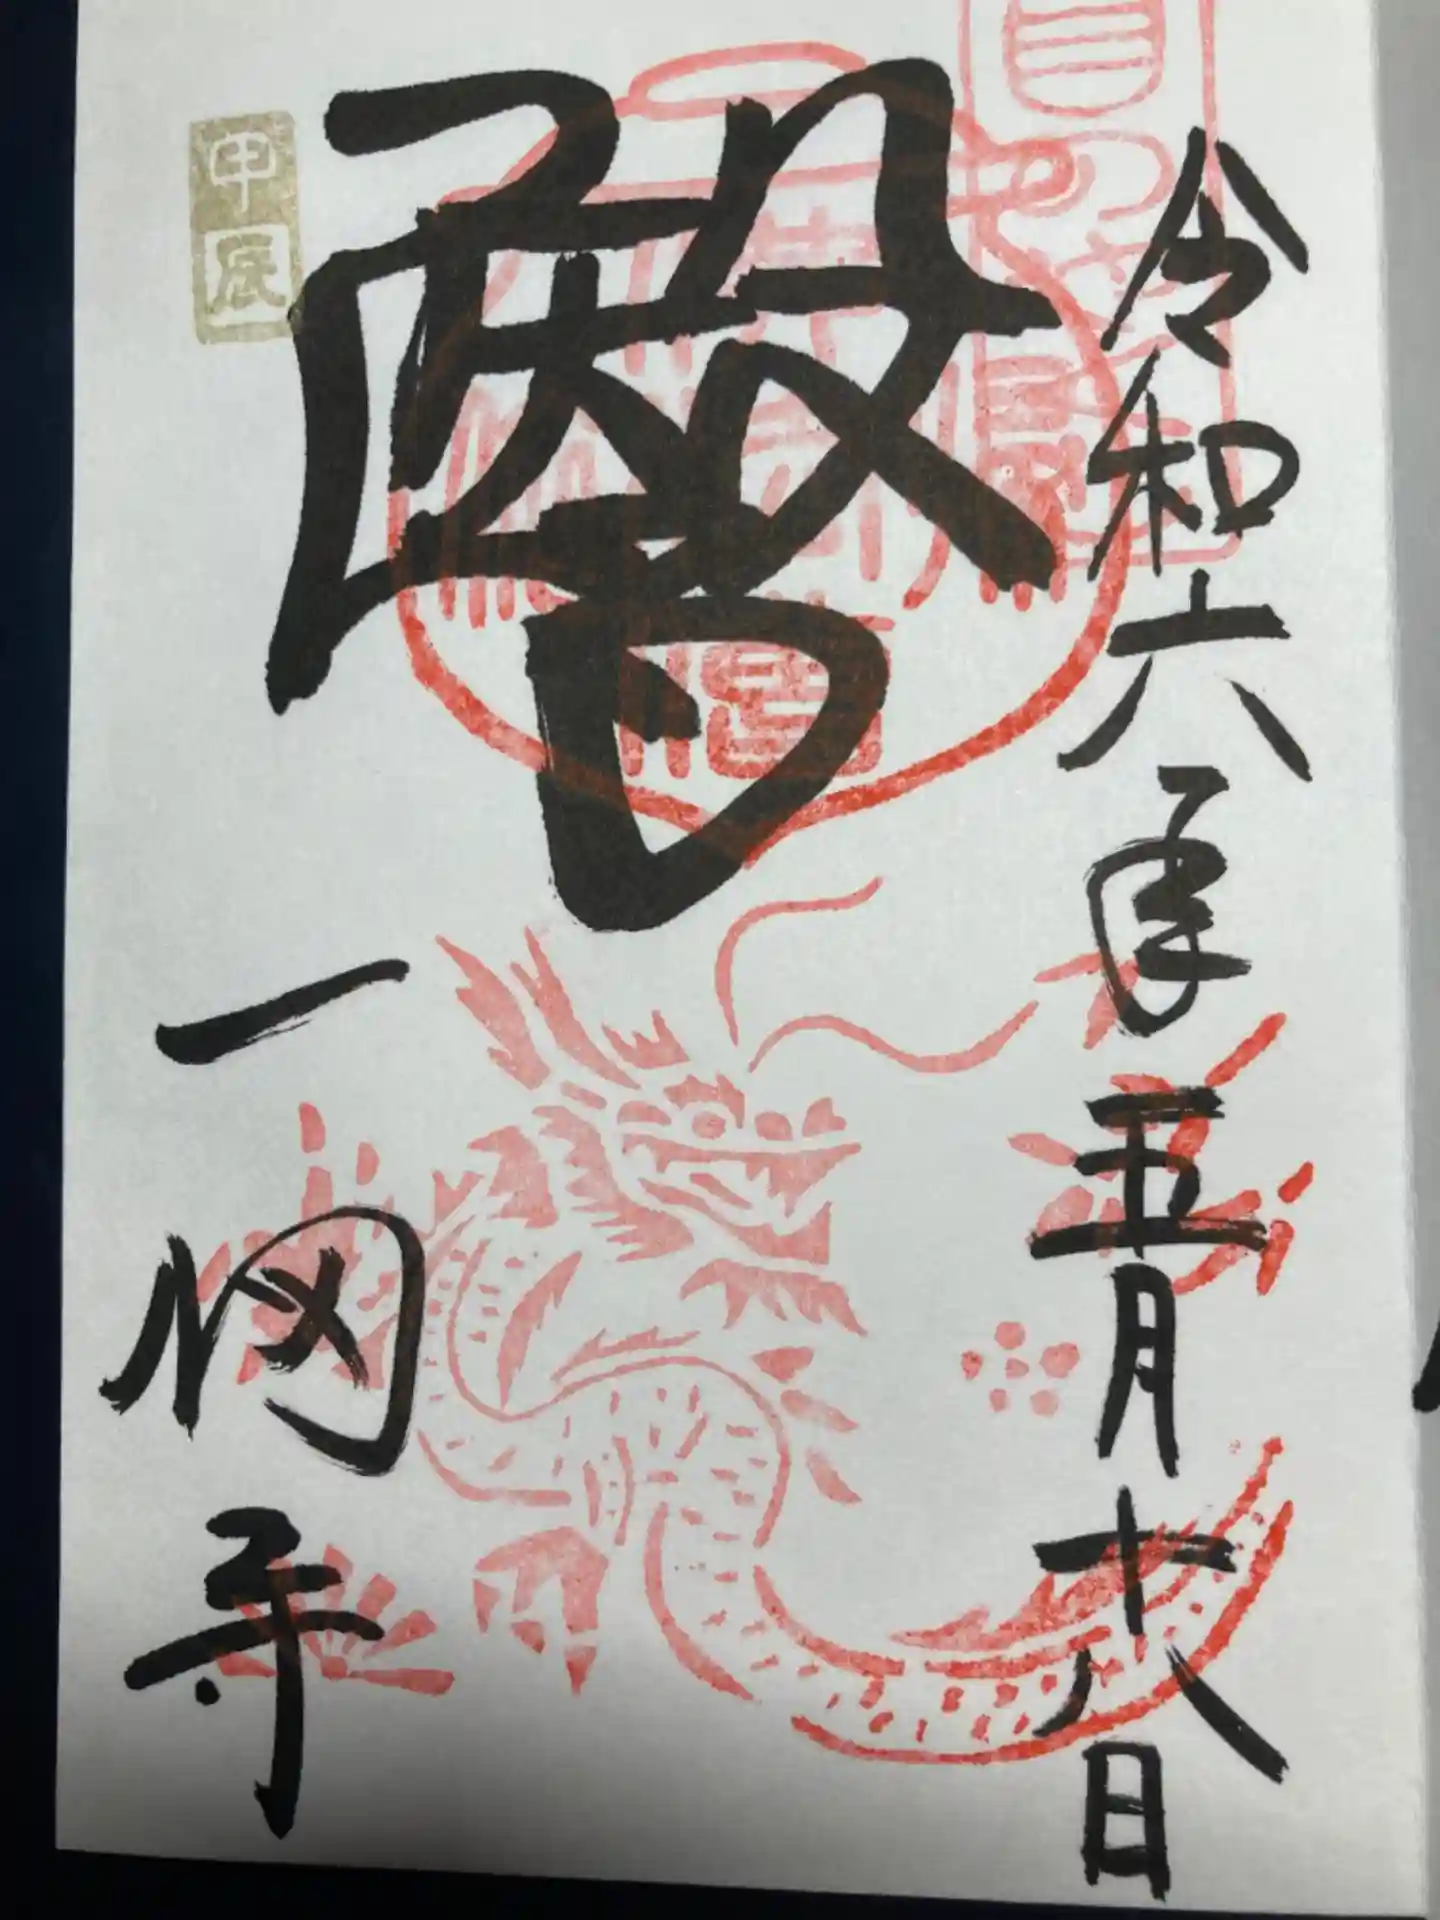 令和六年五月十八日
醫
一畑寺
甲辰